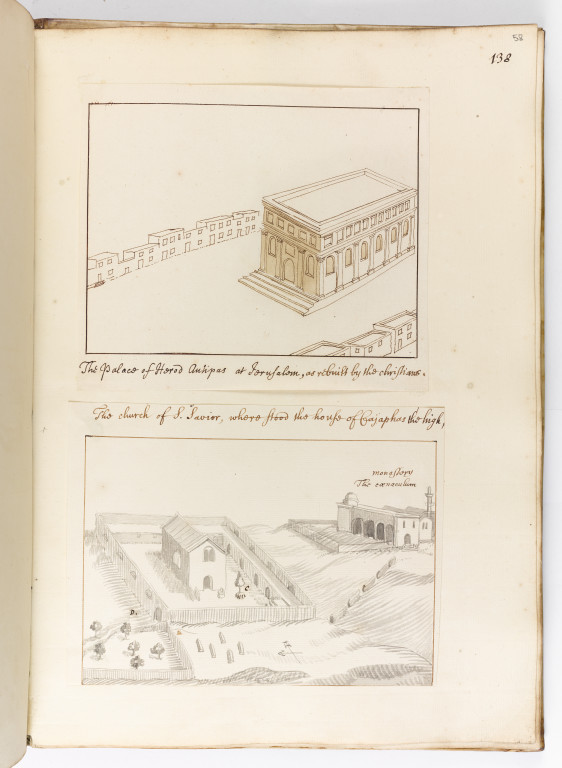 58
138
The Palace of Herod Antipas at Jerusalem, as rebuilt by the christians.
The church of S. Savior, where stood the house of Cajaphas the high,
monastery
The cœnaculum
C
D.